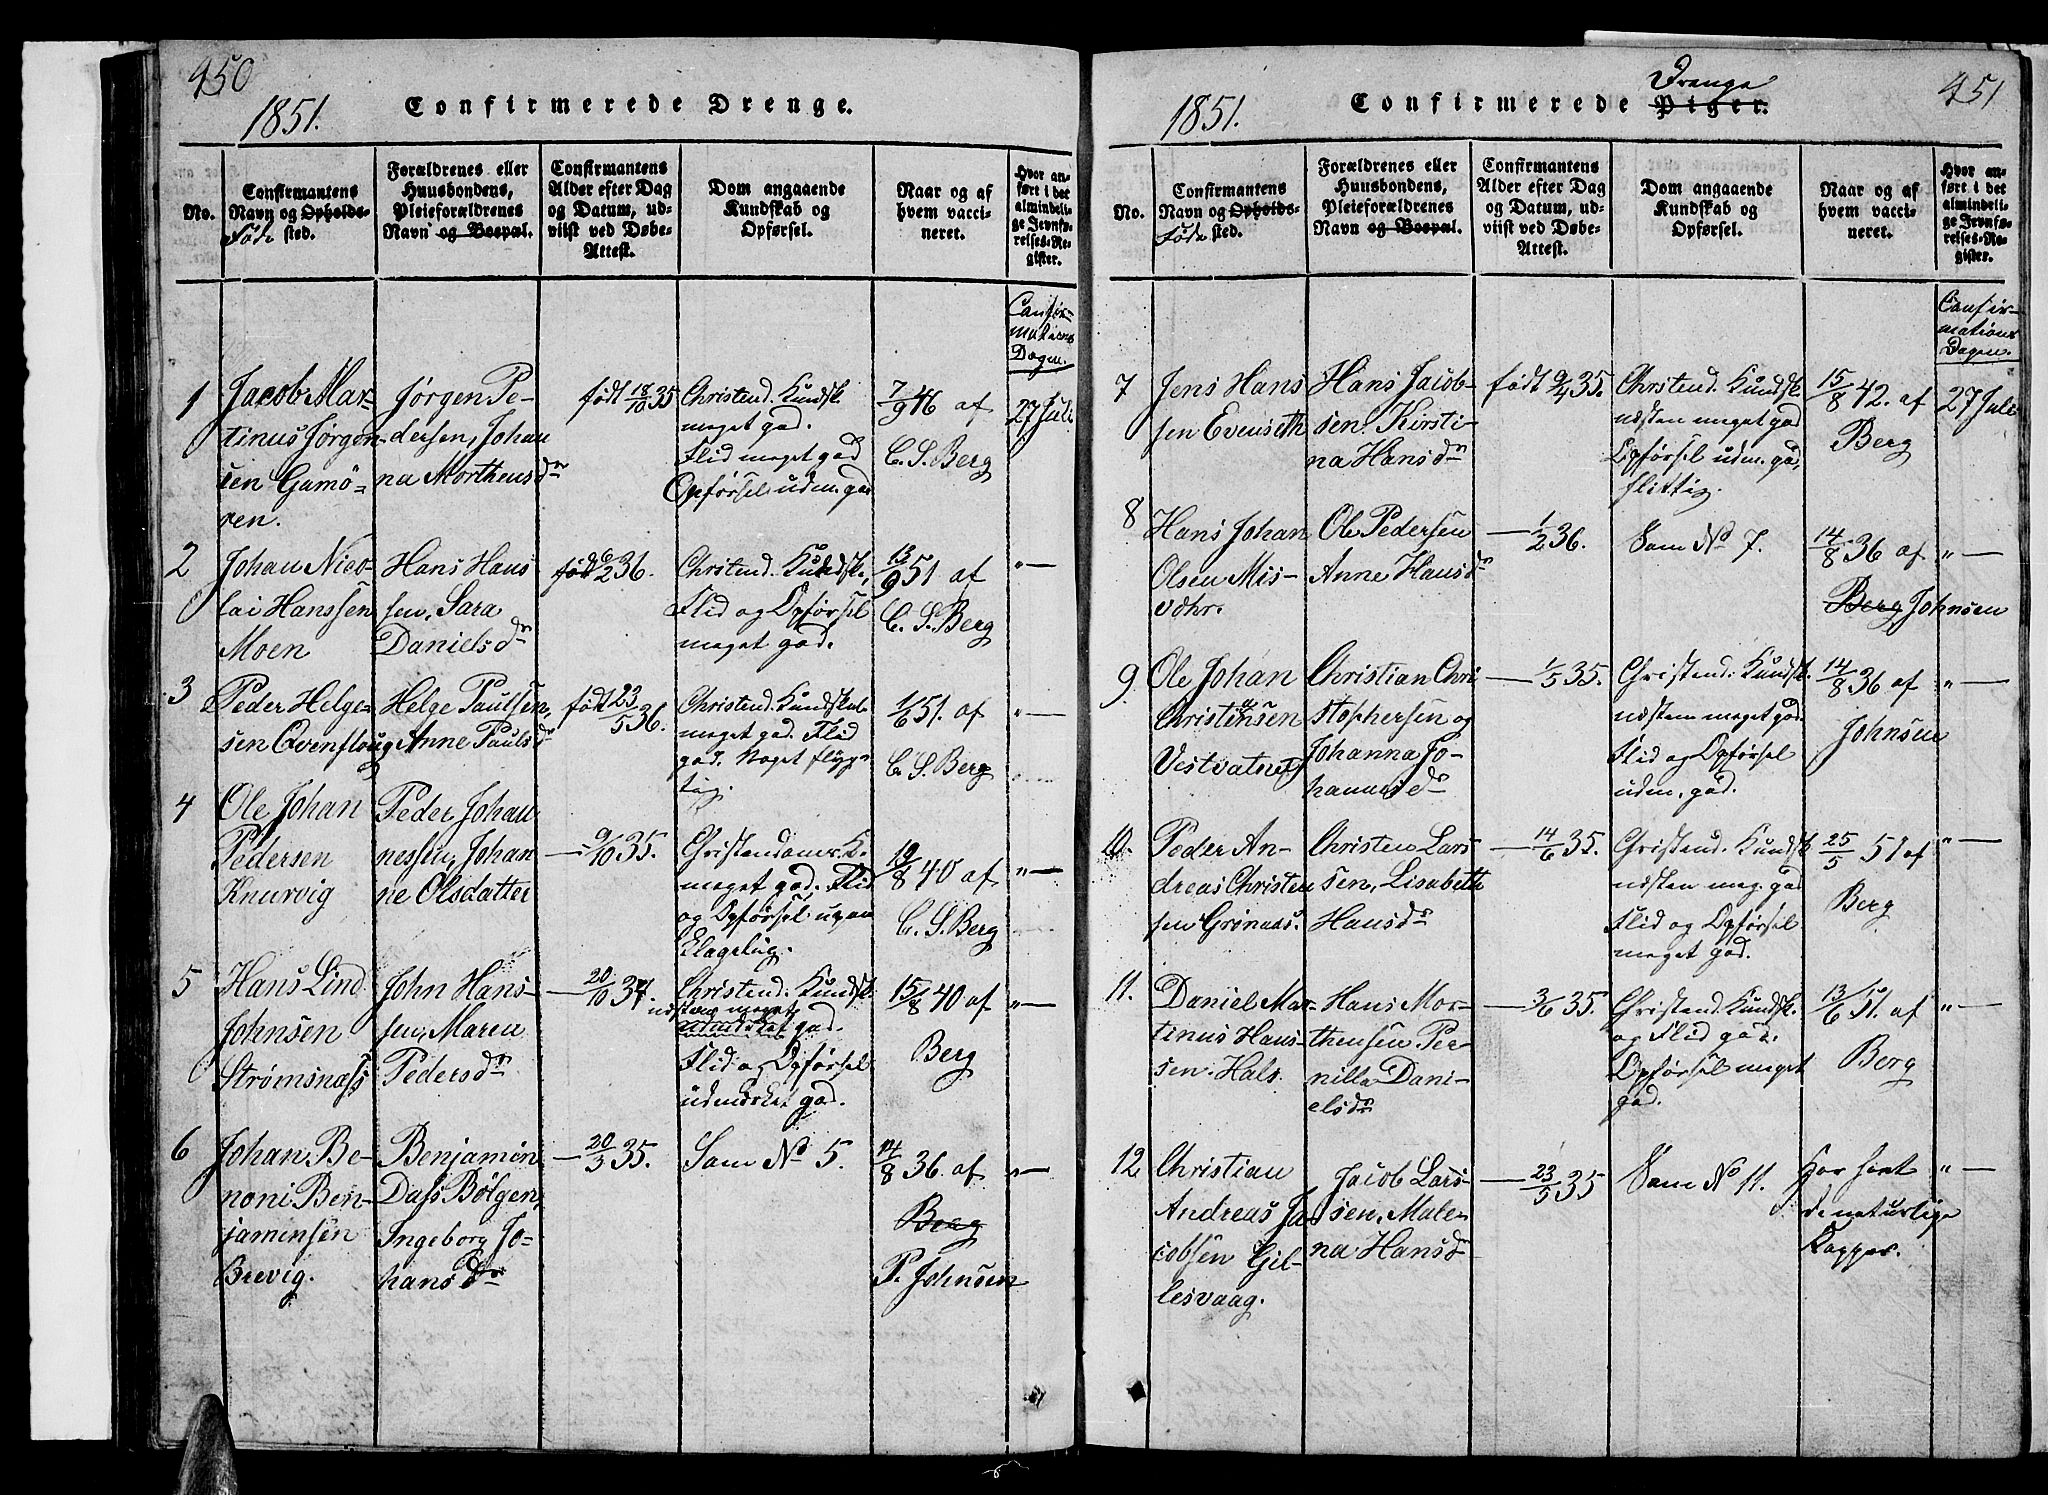 450
1851.
Confirmerede Drenge.
No.
Confirmantens
Navn og Opholds-
Føde sted.
Forældrenes eller
Huusbondens,
Pleieforældrenes
Navn og Bopæl.
Confirmantens
Alder efter Dag
og Datum, ud-
viist ved Døbe-
Attest.
Dom angaaende
Kundskab og
Opførsel.
Naar og af
hvem vacci-
neret.
Hvor an-
ført i det
almindeli-
ge Jevnfø-
relses-Re-
gister.
Confir-
mations
Dagen.
1
Jacob Mar-
tinus Jørgen-
sen Gamö-
ren.
Jørgen Pe-
dersen, Johan
na Morthensdr
født 18/10 35
Christend. Kundsk.
meget god.
Flid meget god
Opførsel udm. god
7/9 46 af
C. S. Berg
27 Juli
2
Johan Nico-
lai Hanssen
Moen
Hans Hans
sen, Sara
Danielsdr
født 6/2 36.
Christend. Kundsk.,
Flid og Opførsel
meget god.
13/9 51 af
C. S. Berg
"—
3
Peder Helge-
sen Qvenfloug
Helge Paulsen,
Anne Paulsdr
født 23/5 36.
Christend. Kundskab
meget god. Flid
god. Noget flyg-
tig.
1/6 51. af
C. S. Berg
"—
4
Ole Johan
Pedersen
Knurvig
Peder Johan
nessen, Johan
ne Olsdatter
— 9/10 35.
Christendoms K.
meget god. Flid
og Opførsel upaa
klagelig.
19/8 40 af
C. S. Berg
"—
5
Hans Lind
Johnsen
Strømsnæss
John Hans-
sen, Maren
Pedersdr
— 20/10 34.
Christend. Kundsk.
næsten meget
udmærket god.
Flid og Opførsel
udmærket god.
15/8 40 af
Berg
"—
6
Johan Be-
noni Ben-
jaminsen
Brevig.
Benjamin
Dass Bölgen,
Ingeborg Jo-
hansdr
— 20/3 35.
Som No 5.
14/8 36. af
Berg
P. Johnsen
"—
451
1851.
Confirmerede Piger.
Drenge
No.
Confirmantens
Navn og Opholds-
Føde sted.
Forældrenes eller
Huusbondens,
Pleieforældrenes
Navn og Bopæl.
Confirmantens
Alder efter Dag
og Datum, ud-
viist ved Døbe-
Attest.
Dom angaaende
Kundskab og
Opførsel.
Naar og af
hvem vacci-
neret.
Hvor an-
ført i det
almindeli-
ge Jevnfø-
relses-Re-
gister.
Confir-
mations
Dagen.
7
Jens Hans
sen Evenseth
Hans Jacob-
sen. Kirsti-
na Hansdr
født 9/4 35.
Christend. Kundsk.
næsten meget god
Opførsel udm. god,
flittig.
15/8 42. af
Berg
27 Juli
8
Hans Johan
Olsen Mis-
værr.
Ole Pedersen
Anne Hansdr
— 1/2 36.
Som No 7.
14/8 36 af
Berg Johnsen
"—
9.
Ole Johan
Christensen
Vestvatnet
Christian Chri
stophersen og
Johanna Jo-
hannisdr
— 1/5 35.
Christend. Kundsk.
næsten meget god.
Flid og Opførsel
udm. god.
14/8 36 af
Johnsen
"—
10.
Peder An-
dreas Christen
sen Grönaas.
Christen Lars
sen, Lisabeth
Hansdr
— 14/6 35.
Christend. Kundsk
næsten meg. god
Flid og Opførsel
meget god.
25/5 51 af
Berg
"—
11.
Daniel Mar-
tinus Hans-
sen. Hals.
Hans Mor-
thensen Per
nilla Dani-
elsdr
— 3/6 35.
Christend. Kundsk.
og Flid god.
Opførsel meget
god.
13/6 51. af
Berg
"—
12.
Christian
Andreas Ja
cobsen Gil-
lesvaag.
Jacob Lars-
sen, Male-
na Hansdr
— 23/5 35
Som No 11.
Har havt
de naturlige
Kopper.
"—